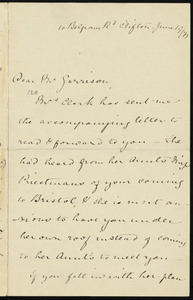 10 Belgrave Rd Clifton June 15/77
Dear Mr Garrison,
Mrs Clark has sent me
the accompanying letter to
read & forward to you – She
had heard from her Aunts Miss
Priestmans of your coming
to Bristol, & she is most an-
xious to have you under
her own roof instead of coming
to her Aunts to meet you –
If you fell in with her plan